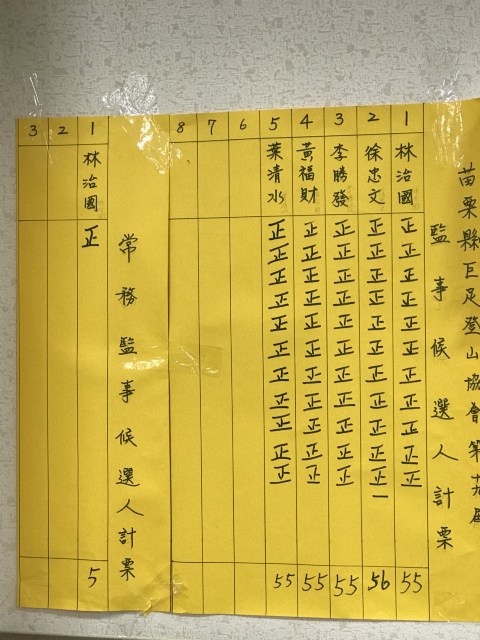 苗栗縣巨足登山協會第
監事候選人計票
1 林治國 正正正正正正正正正正正 55
2 徐忠文 正正正正正正正正正正正一 56
3 李勝發 正正正正正正正正正正正 55
4 黃福財 正正正正正正正正正正正 55
5 葉清水 正正正正正正正正正正正 55
6
7
8
常務監事候選人計票
1 林治國 正 5
2
3